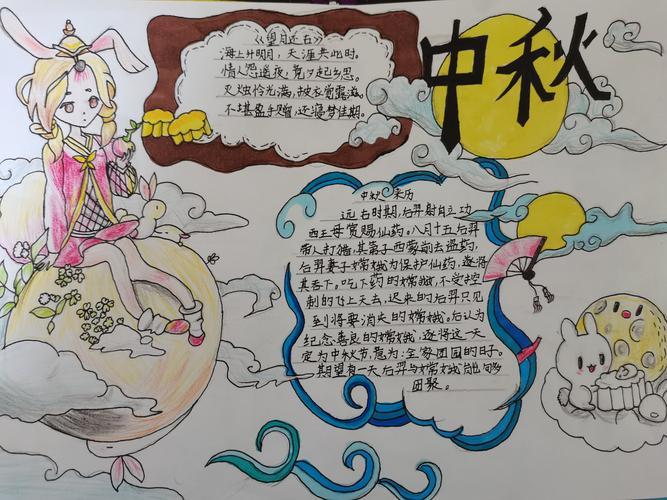 《望月还右》
海上升明月，天涯共此时。
情人怨遥夜，竟夕起相思。
灭烛怜光满，披衣觉露滋。
不堪盈手赠，还寝梦佳期。
中秋
中秋 来历
远右时期，后羿射日立功
西王母赏赐仙药。八月十五后羿
带人打猎，其第子西蒙前去逼药，
后羿妻子嫦娥为保护仙药，遂将
其吞下。吃下药的嫦娥，不受控
制的飞上天去，迟来的后羿只见
到将要消失的嫦娥。后认为
纪念善良的嫦娥，遂将这一天
定为中秋节，意为：全家团圆的日子。
期望有一天后羿与嫦娥能够
团聚。